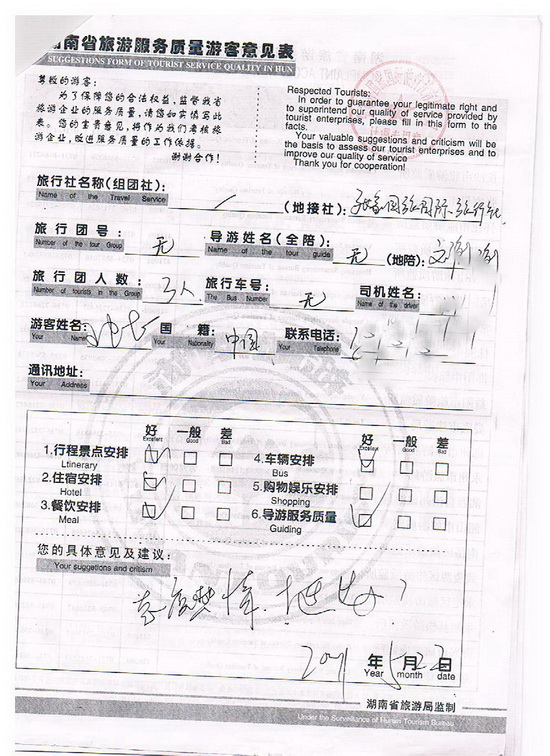 湖南省旅游服务质量游客意见表
SUGGESTIONS FORM OF TOURIST SERVICE QUALITY IN HUN
尊敬的游客:
为了保障您的合法权益,监督我省
旅游企业的服务质量,请您如实填写此
表。您的宝贵意见,将作为我们考核旅
游企业,改进服务质量的工作依据。
谢谢合作!
Respected Tourists:
In order to guarantee your legitimate right and
to superintend our quality of service provided by
tourist enterprises, please fill in this form to the
facts.
Your valuable suggestions and criticism will be
the basis to assess our tourist enterprises and to
improve our quality of service
Thank you for cooperation!
旅行社名称(组团社): / (地接社):
Name of the Travel Service
旅行团号: 无 导游姓名(全陪): 无 (地陪):
Number of the tour Group Name of the tour guide
旅行团人数: 3人 旅行车号: 无 司机姓名:
Number of tourists in the Group The Bus Number Name of the driver
游客姓名: 国籍: 中国 联系电话:
Your Name Your Nationality Your Telephone
通讯地址:
Your Address
好 一般 差 好 一般 差
Excellent Good Bad Excellent Good Bad
1.行程景点安排 4.车辆安排
Ltinerary Bus
2.住宿安排 5.购物娱乐安排
Hotel Shopping
3.餐饮安排 6.导游服务质量
Meal Guiding
您的具体意见及建议:
Your suggetions and critism
年 5月22日
Year month date
湖南省旅游局监制
Under the Surveillance of Hunan Tourism Bureau